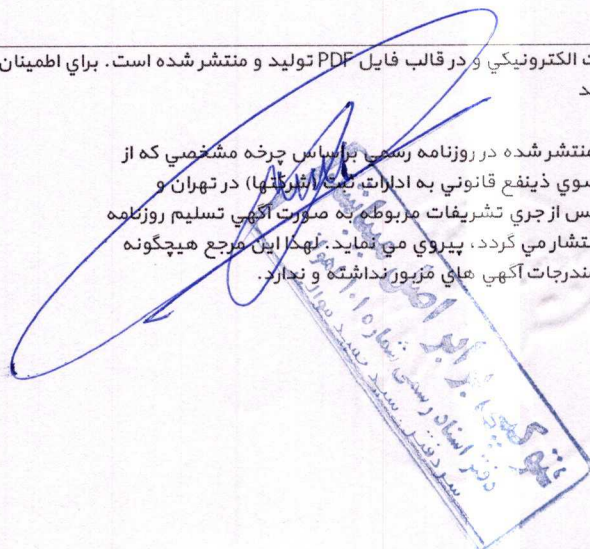 ت الكترونيكي و در قالب فايل PDF توليد و منتشر شده است. براي اطمينان
د
منتشر شده در روزنامه رسمي براساس چرخه مشخصي كه از
سوي ذينفع قانوني به ادارات ثبت (شركتها) در تهران و
س از جري تشريفات مربوطه به صورت آگهي تسليم روزنامه
نتشار مي گردد، پيروي مي نمايد. لهذا اين مرجع هيچگونه
مندرجات آگهي هاي مزبور نداشته و ندارد.
برابر اصل
دفتر اسناد رسمی شماره
سردفتر سید